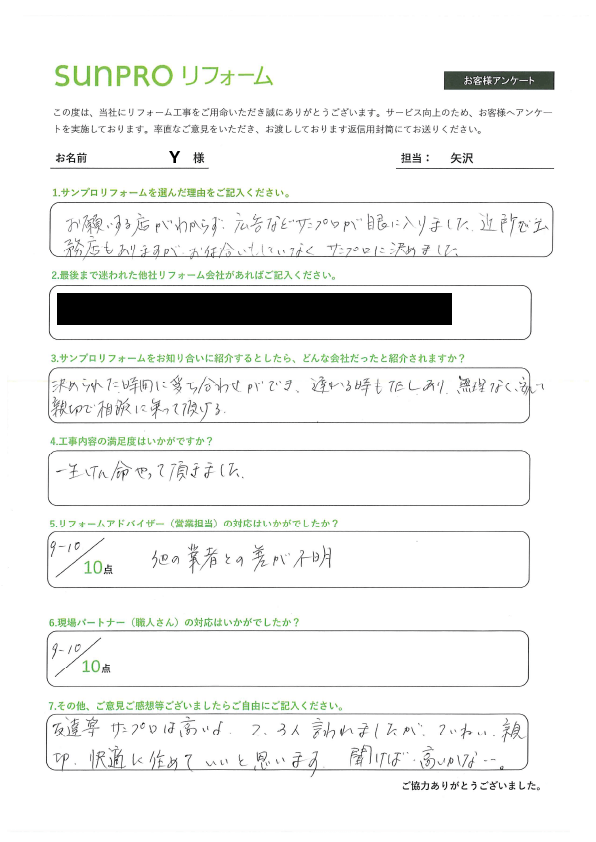 SUNPRO リフォーム
お客様アンケート
この度は、当社にリフォーム工事をご用命いただき誠にありがとうございます。サービス向上のため、お客様へアンケー
トを実施しております。率直なご意見をいただき、お渡ししております返信用封筒にてお送りください。
お名前 Y 様 担当： 矢沢
1.サンプロリフォームを選んだ理由をご記入ください。
お願いする店がわからず、広告などサンプロが目に入りました。近所で工
務店もありますが、お付合いもしていなく サンプロに決めました。
2.最後まで迷われた他社リフォーム会社があればご記入ください。
3.サンプロリフォームをお知り合いに紹介するとしたら、どんな会社だったと紹介されますか？
決められた時間に打ち合わせができ、遅れる時もTELあり、無理なく、
親切で相談に乗って頂ける。
4.工事内容の満足度はいかがですか？
一生けん命やって頂きました。
5.リフォームアドバイザー（営業担当）の対応はいかがでしたか？
9-10／10点 他の業者との差が不明
6.現場パートナー（職人さん）の対応はいかがでしたか？
9-10／10点
7.その他、ご意見ご感想等ございましたらご自由にご記入ください。
友達等 サンプロは高いよ、2、3人 言われましたが、ていねい、親
切、快適に住めていいと思います。 聞けば 高いかな…。
ご協力ありがとうございました。